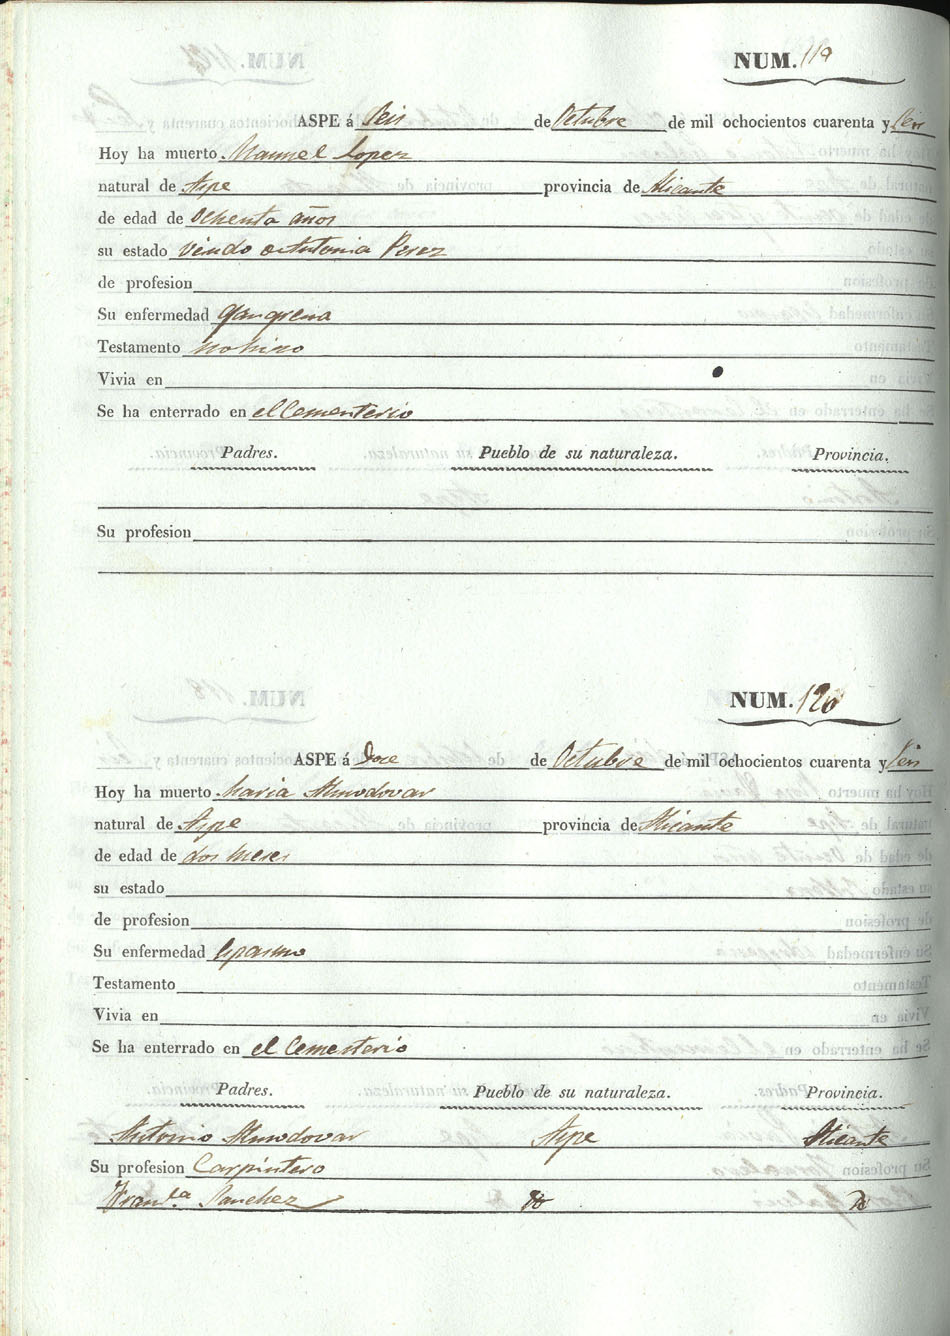 NUM. 119
ASPE á Seis de Octubre de mil ochocientos cuarenta y Seis
Hoy ha muerto Manuel Lopez
natural de Aspe provincia de Alicante
de edad de ochenta años
su estado viudo de Antonia Perez
de profesion
Su enfermedad gangrena
Testamento no hizo
Vivia en
Se ha enterrado en el Cementerio
Padres. Pueblo de su naturaleza. Provincia.
Su profesion
NUM. 120
ASPE á Doce de Octubre de mil ochocientos cuarenta y Seis
Hoy ha muerto Maria Almodovar
natural de Aspe provincia de Alicante
de edad de dos meses
su estado
de profesion
Su enfermedad Espasmo
Testamento
Vivia en
Se ha enterrado en el Cementerio
Padres. Pueblo de su naturaleza. Provincia.
Antonio Almodovar Aspe Alicante
Su profesion Carpintero
Fran.ca Sanchez